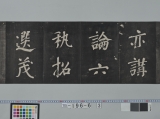 亦講
論六
執招
選茂